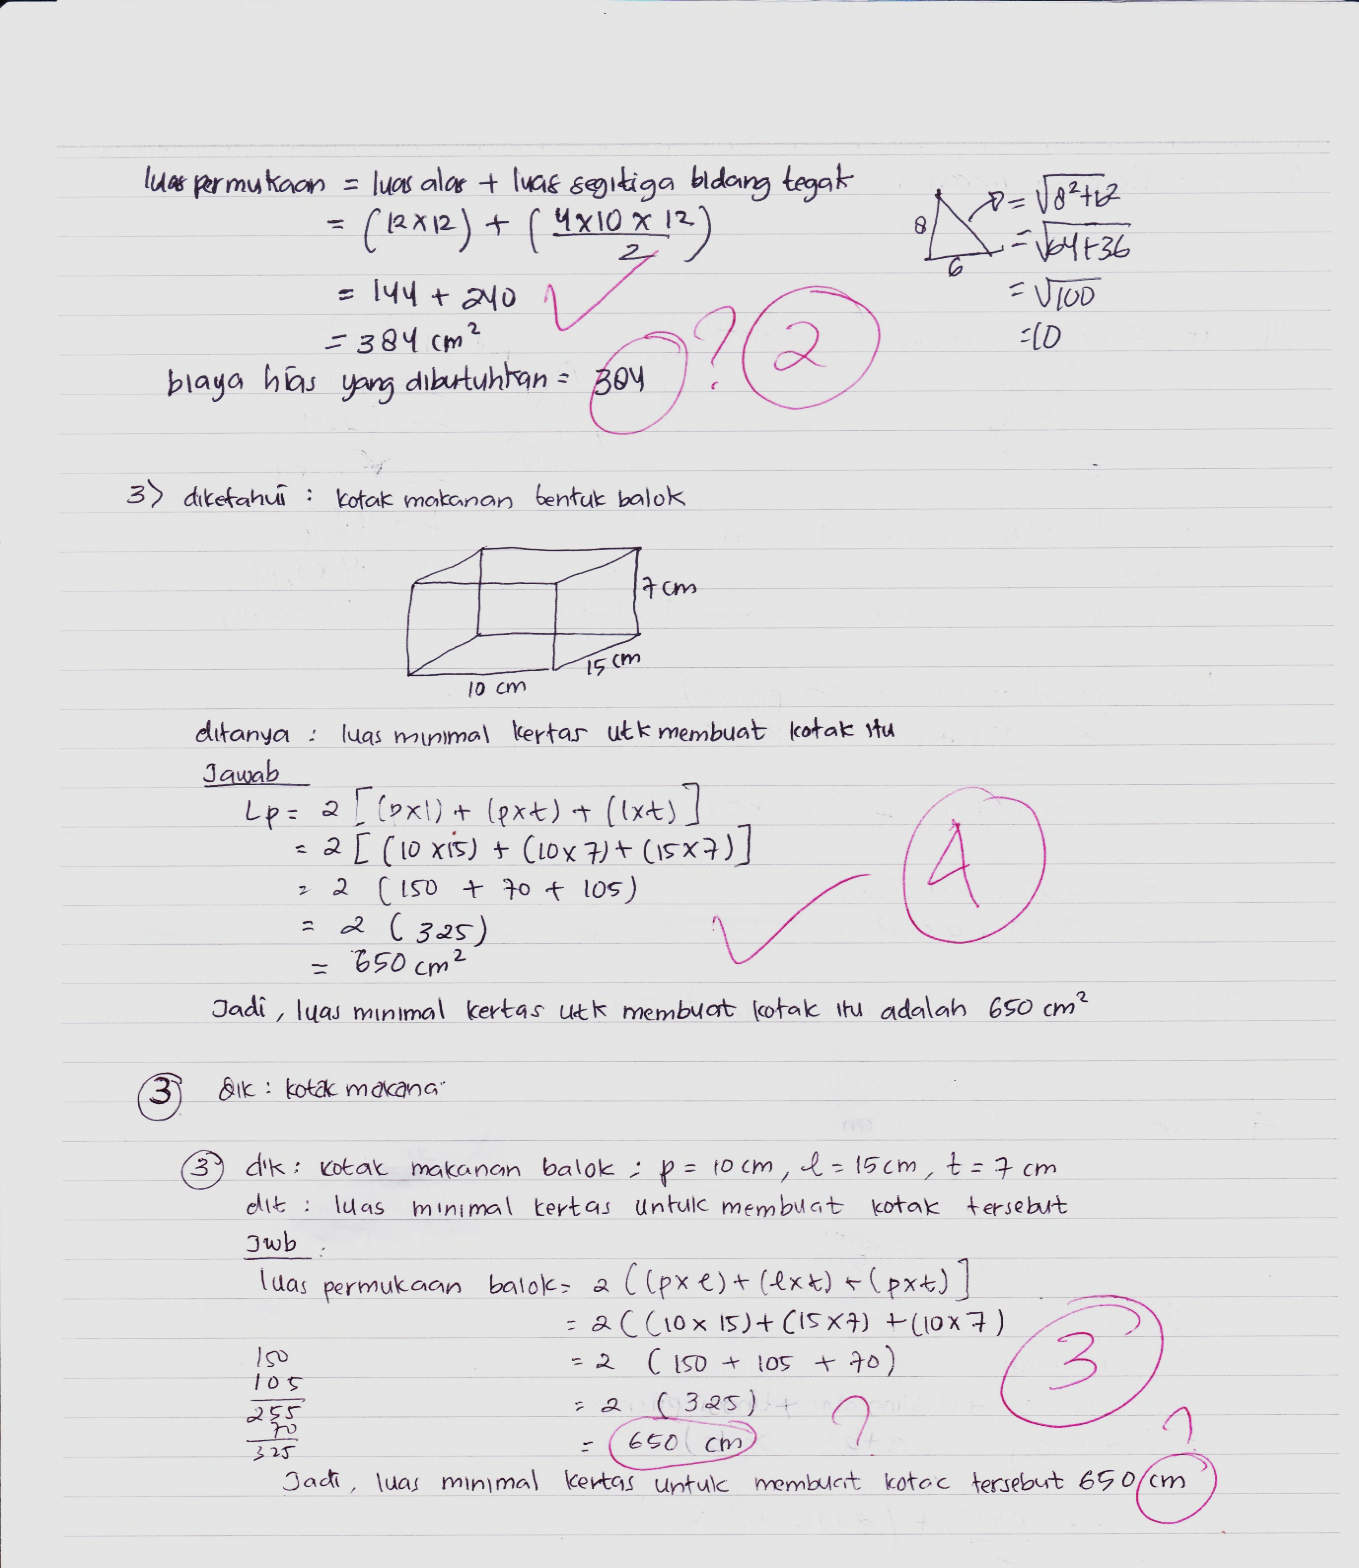 luas permukaan = luas alas + luas segitiga bidang tegak
= (12 x 12) + (4 x 10 x 12 / 2)
= 144 + 240
= 384 cm²
biaya hias yang dibutuhkan = 384
? 2
8
6
= √8²+6²
= √64+36
= √100
=10
3) diketahui : kotak makanan bentuk balok
7 cm
15 cm
10 cm
ditanya : luas minimal kertas utk membuat kotak itu
Jawab
Lp = 2 [(pxl) + (pxt) + (lxt)]
= 2 [(10 x 15) + (10 x 7) + (15 x 7)]
= 2 (150 + 70 + 105)
= 2 (325)
= 650 cm²
4
Jadi, luas minimal kertas utk membuat kotak itu adalah 650 cm²
3 dik : kotak makana
3 dik : kotak makanan balok ; p = 10 cm, l = 15 cm, t = 7 cm
dit : luas minimal kertas untuk membuat kotak tersebut
Jwb :
luas permukaan balok = 2 ((pxl) + (lxt) + (pxt)]
= 2 ((10 x 15) + (15 x 7) + (10 x 7)
= 2 (150 + 105 + 70)
= 2 (325)
= 650 cm
150
105
255
70
325
3
?
?
Jadi, luas minimal kertas untuk membuat kotac tersebut 650 cm